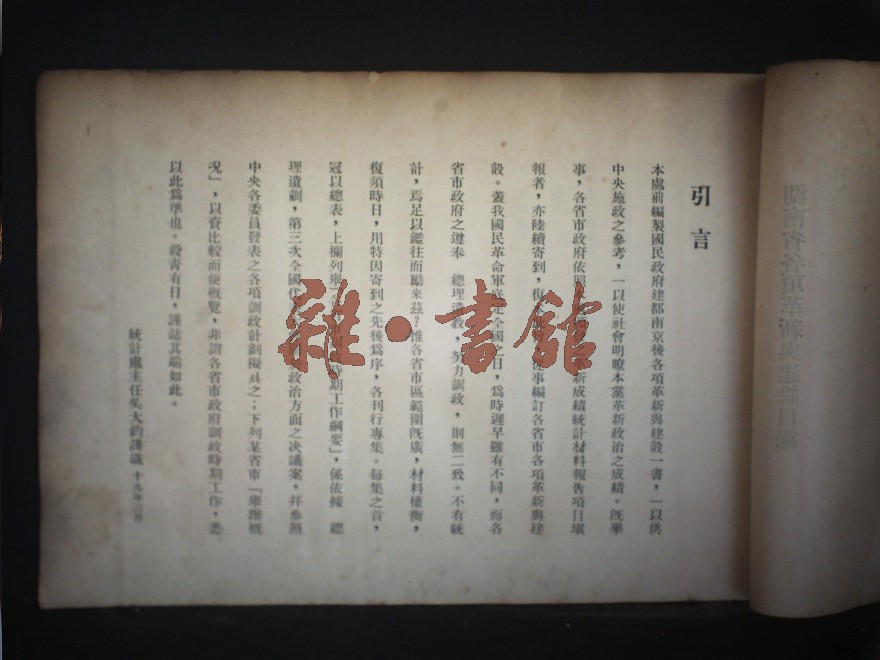 引言
本處前編製國民政府建都南京後各項革新與建設一書，一以供
中央施政之參考，一以使社會明瞭本黨革新政治之成績。既畢
事，各省市政府依照新成績統計材料報告項目填
報者，亦陸續寄到，復事編訂各省市各項革新與建
設。蓋我國民革命軍底定全國之日，爲時遲早雖有不同，而各
省市政府之遵奉　總理遺教，努力訓政，則無二致。不有統
計，焉足以鑑往而勵來茲？惟各省市區範圍旣廣，材料權衡，
復須時日，用特因寄到之先後爲序，各刊行專集。每集之首，
冠以總表，上欄列舉時期工作綱要」，係依據　總
理遺訓，第三次全國代政治方面之決議案，幷參照
中央各委員發表之各項訓政計劃擬具之；下列某省市「舉辦概
況」，以資比較而便概覽，非謂各省市政府訓政時期工作，悉
以此爲準也。殺靑有日，謹誌其端如此。
統計處主任吳大鈞謹識　十九年三月
雜・書館
湖南省各項革新與建設目錄